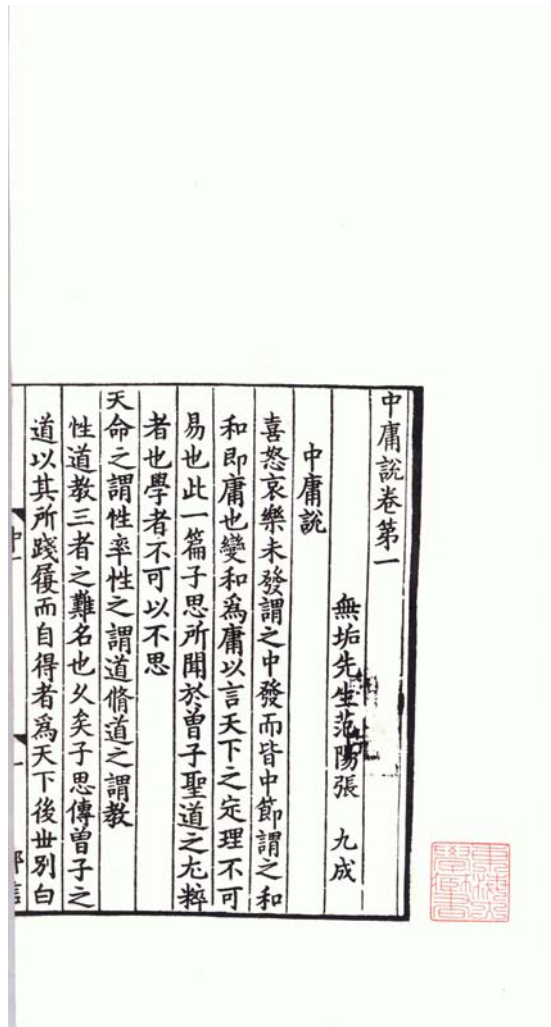 中庸說卷第一
無垢先生范陽張 九成
中庸說
喜怒哀樂未發謂之中發而皆中節謂之和
和即庸也變和為庸以言天下之定理不可
易也此一篇子思所聞於曾子聖道之尤粹
者也學者不可以不思
天命之謂性率性之謂道脩道之謂教
性道教三者之難名也乆矣子思傳曾子之
道以其所踐履而自得者為天下後丗別白